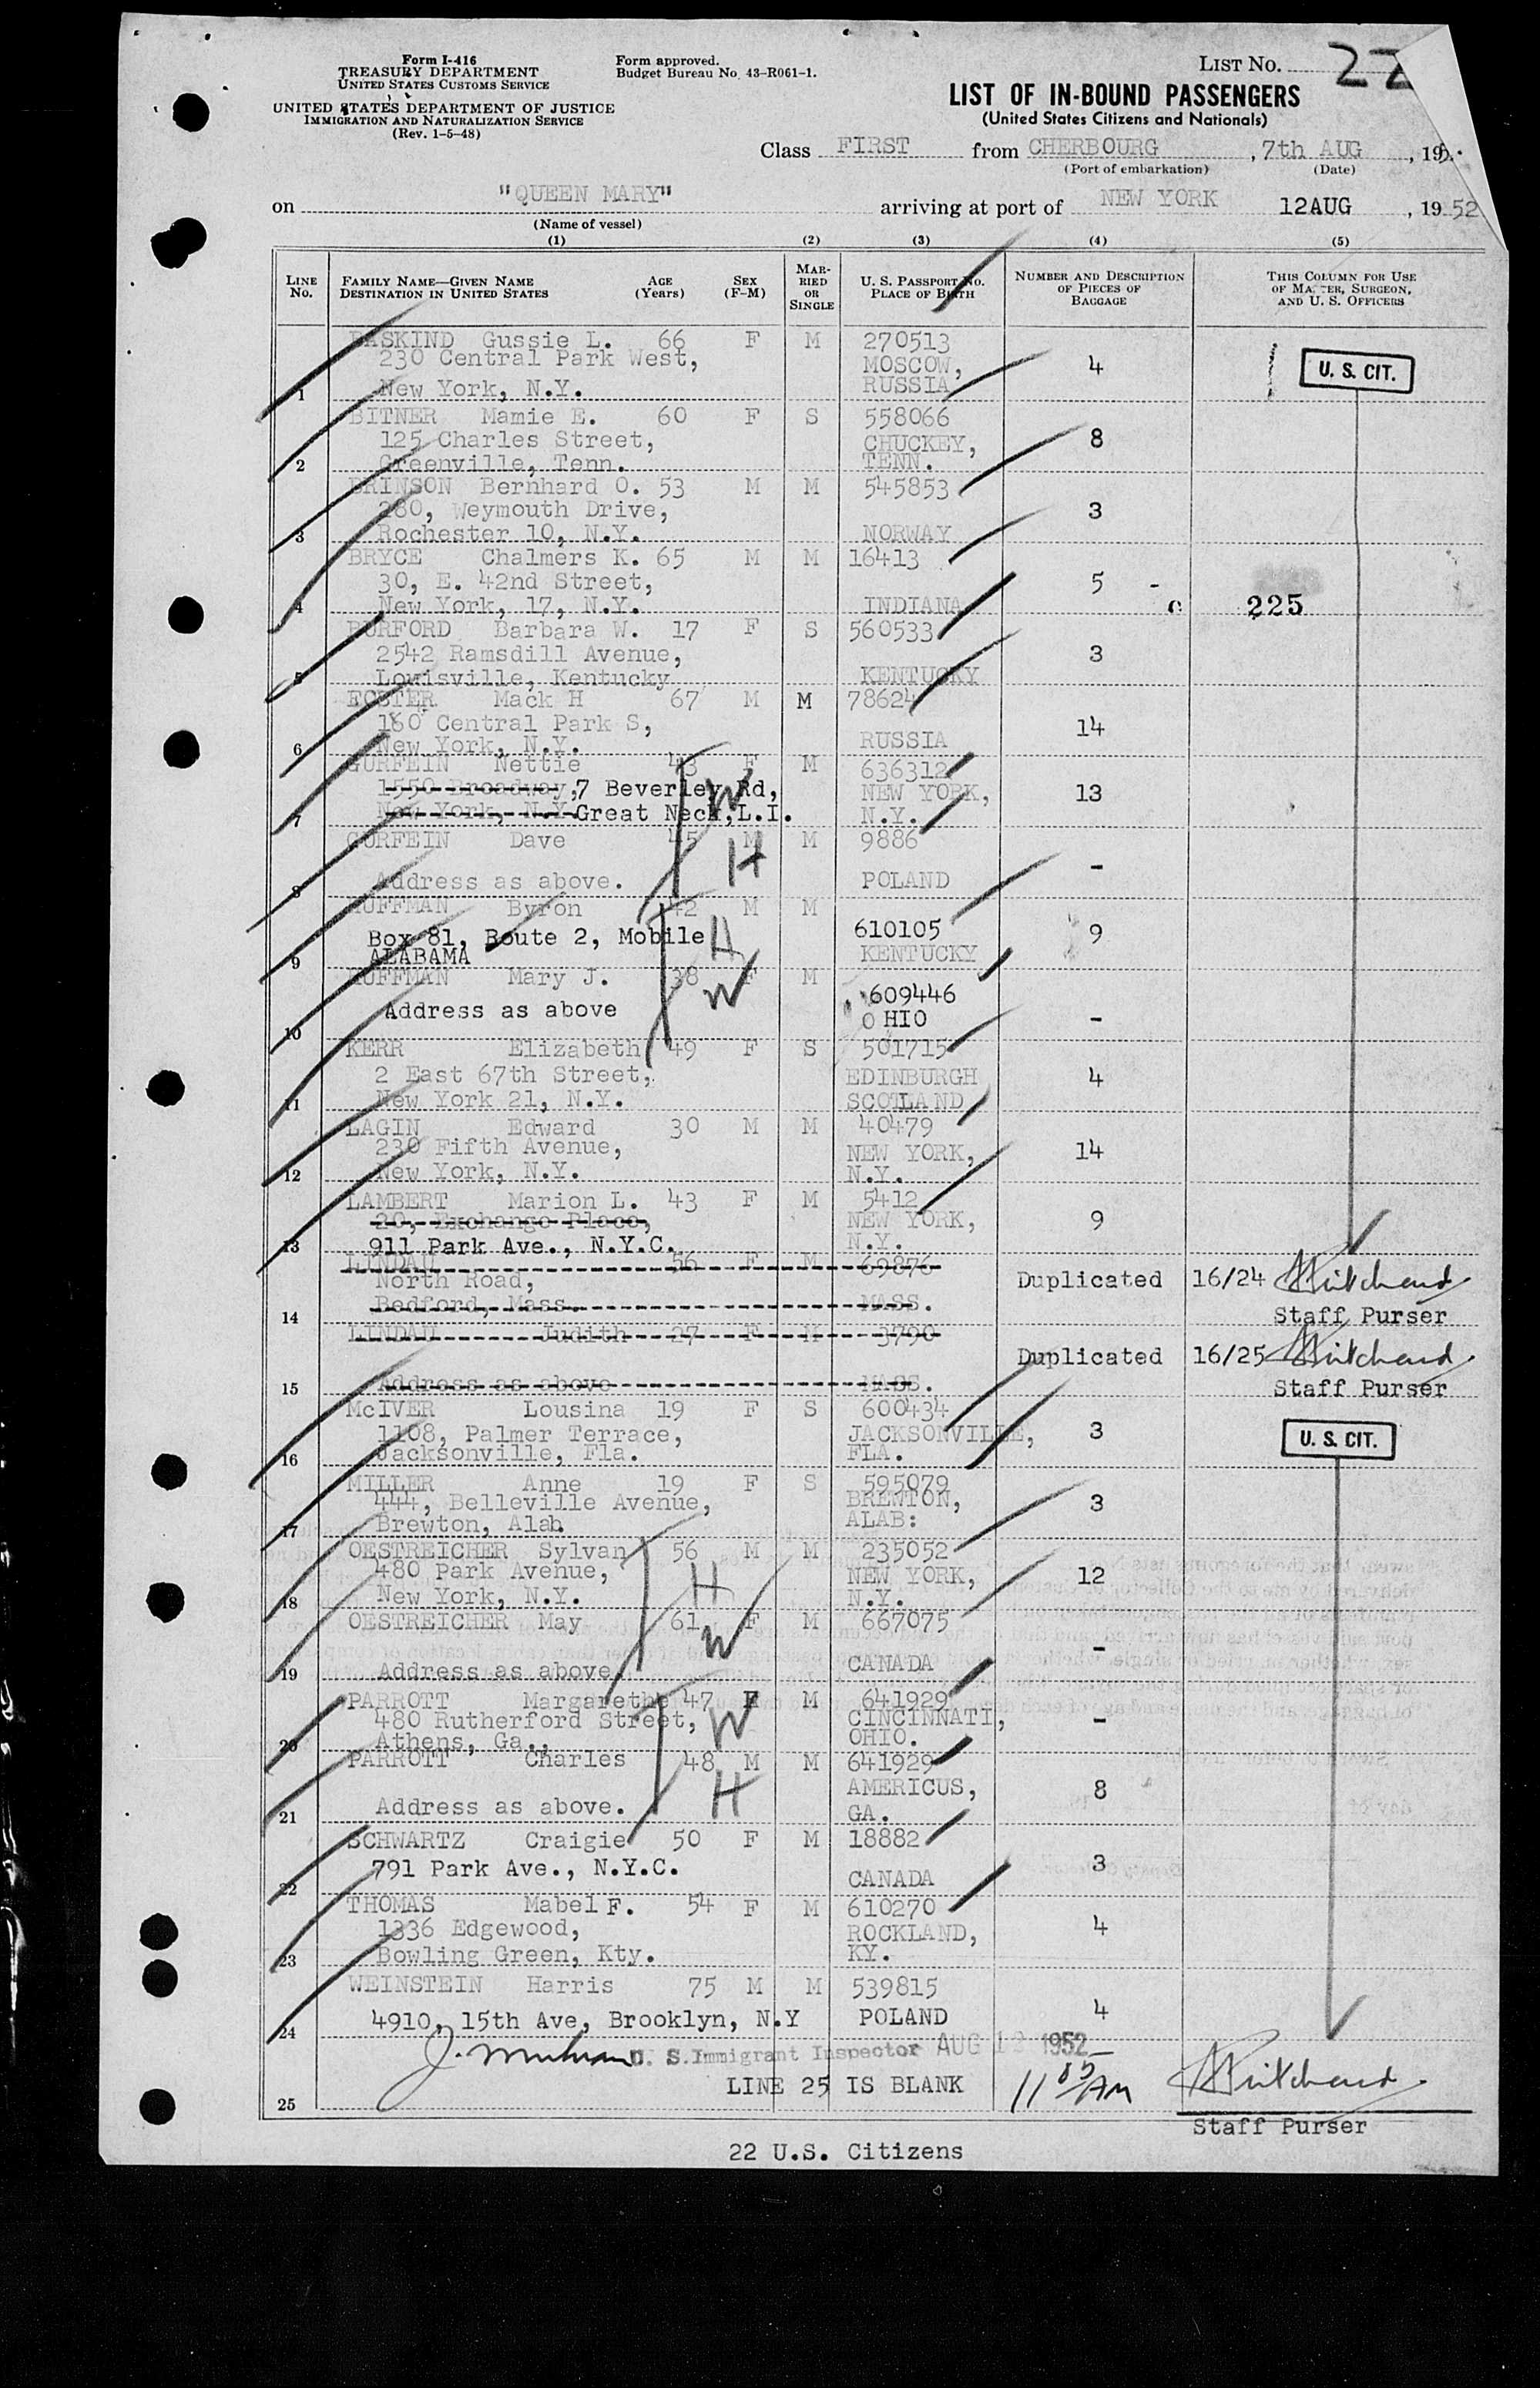 Form I-416
TREASURY DEPARTMENT
UNITED STATES CUSTOMS SERVICE
UNITED STATES DEPARTMENT OF JUSTICE
IMMIGRATION AND NATURALIZATION SERVICE
(Rev. 1-5-48)
Form approved.
Budget Bureau No. 43-R061-1.
LIST NO. 22
LIST OF IN-BOUND PASSENGERS
(United States Citizens and Nationals)
Class FIRST from CHERBOURG, 7th AUG, 195
(Port of embarkation) (Date)
on "QUEEN MARY" arriving at port of NEW YORK 12AUG, 1952
(Name of vessel)
(1) (2) (3) (4) (5)
LINE NO. FAMILY NAME—GIVEN NAME DESTINATION IN UNITED STATES AGE (Years) SEX (F-M) MARRIED OR SINGLE U. S. PASSPORT NO. PLACE OF BIRTH NUMBER AND DESCRIPTION OF PIECES OF BAGGAGE THIS COLUMN FOR USE OF MASTER, SURGEON, AND U. S. OFFICERS
BASKIND Gussie L. 66 F M 270513
230 Central Park West, MOSCOW, 4 U. S. CIT.
1 New York, N.Y. RUSSIA
BITNER Mamie E. 60 F S 558066
125 Charles Street, CHUCKEY, 8
2 Greenville, Tenn. TENN.
BRINSON Bernhard O. 53 M M 545853
280, Weymouth Drive, 3
3 Rochester 10, N.Y. NORWAY
BRYCE Chalmers K. 65 M M 16413
30, E. 42nd Street, 5 -
4 New York, 17, N.Y. INDIANA c 225
BURFORD Barbara W. 17 F S 560533
2542 Ramsdill Avenue, 3
5 Louisville, Kentucky KENTUCKY
Mack H 67 M M 78624
160 Central Park S, 14
6 New York, N.Y. RUSSIA
GURFEIN Nettie 43 F M 636312
1550 Broadway, 7 Beverley Rd, W NEW YORK, 13
7 New York, N.Y. Great Neck, L.I. N.Y.
GURFEIN Dave 45 M M 9886
H
8 Address as above. POLAND -
HUFFMAN Byron 42 M M
Box 81, Route 2, Mobile H 610105 9
9 ALABAMA KENTUCKY
HUFFMAN Mary J. 38 F M
W 609446
10 Address as above OHIO -
KERR Elizabeth 49 F S 501715
2 East 67th Street, EDINBURGH 4
11 New York 21, N.Y. SCOTLAND
LAGIN Edward 30 M M 40479
230 Fifth Avenue, NEW YORK, 14
12 New York, N.Y. N.Y.
LAMBERT Marion L. 43 F M 5412
20, Exchange Place, NEW YORK, 9
13 911 Park Ave., N.Y.C. N.Y.
LINDAU 56 F M 69876
North Road, Duplicated 16/24 Pritchard
14 Bedford, Mass. MASS. Staff Purser
LINDAU Judith 27 F M 3790
Duplicated 16/25 Pritchard
15 Address as above MASS. Staff Purser
McIVER Lousina 19 F S 600434
1108, Palmer Terrace, JACKSONVILLE, 3 U. S. CIT.
16 Jacksonville, Fla. FLA.
MILLER Anne 19 F S 595079
444, Belleville Avenue, BREWTON, 3
17 Brewton, Alab. ALAB:
OESTREICHER Sylvan 56 M M 235052
480 Park Avenue, H NEW YORK, 12
18 New York, N.Y. N.Y.
OESTREICHER May 61 F M 667075
W -
19 Address as above CANADA
PARROTT Margarethe 47 F M 641929
480 Rutherford Street, W CINCINNATI, -
20 Athens, Ga., OHIO.
PARROTT Charles 48 M M 641929
H AMERICUS, 8
21 Address as above. GA.
SCHWARTZ Craigie 50 F M 18882
791 Park Ave., N.Y.C. 3
22 CANADA
THOMAS Mabel F. 54 F M 610270
1336 Edgewood, ROCKLAND, 4
23 Bowling Green, Kty. KY.
WEINSTEIN Harris 75 M M 539815
24 4910, 15th Ave, Brooklyn, N.Y POLAND 4
U. S. Immigrant Inspector AUG 12 1952
25 LINE 25 IS BLANK 11 05 AM Pritchard
Staff Purser
22 U.S. Citizens